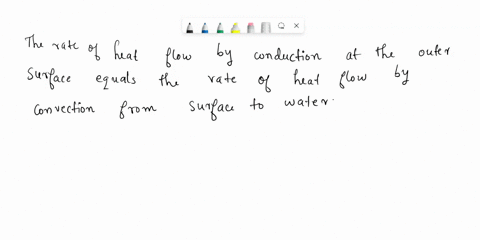 The rate of heat flow by conduction at the outer
Surface equals the rate of heat flow by
convection from surface to water.